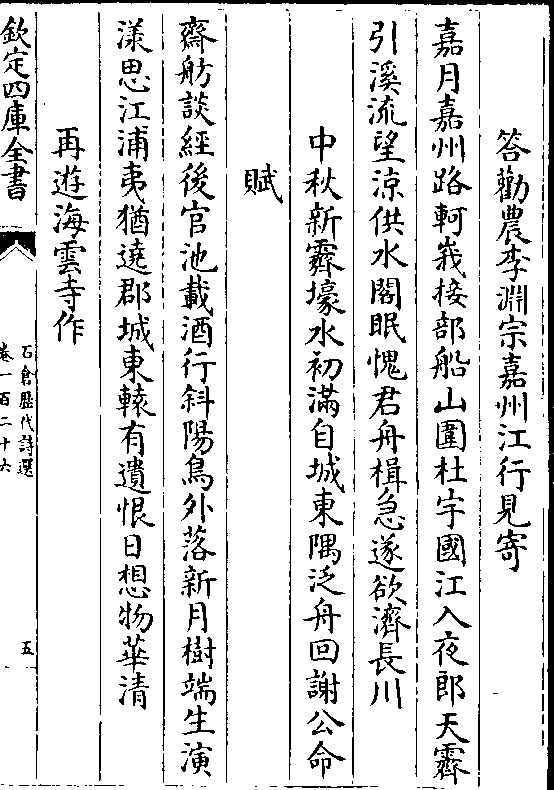 答勸農李淵宗嘉州江行見寄
嘉月嘉州路軻峩接部船山圍杜宇國江入夜郎天霽
引溪流望涼供水閣眠愧君舟楫急遂欲濟長川
中秋新霽壕水初滿自城東隅泛舟回謝公命
賦
齋舫談經後官池載酒行斜陽鳥外落新月樹端生演
漾思江浦夷猶遶郡城東轅有遺恨日想物華清
再遊海雲寺作
欽定四庫全書
石倉歷代詩選
卷一百二十六
五